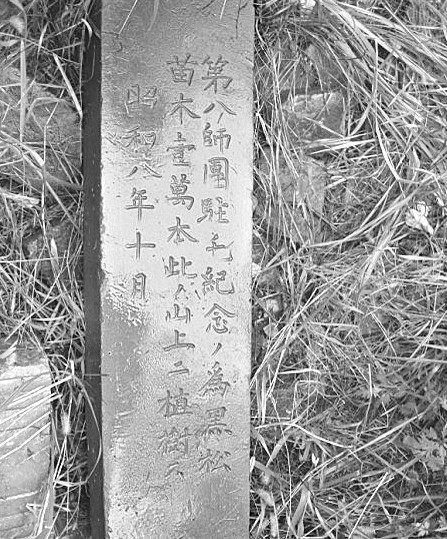 第八師團駐屯紀念ノ為黒松
苗木壹萬本此ノ山上ニ植樹ス
昭和八年十月